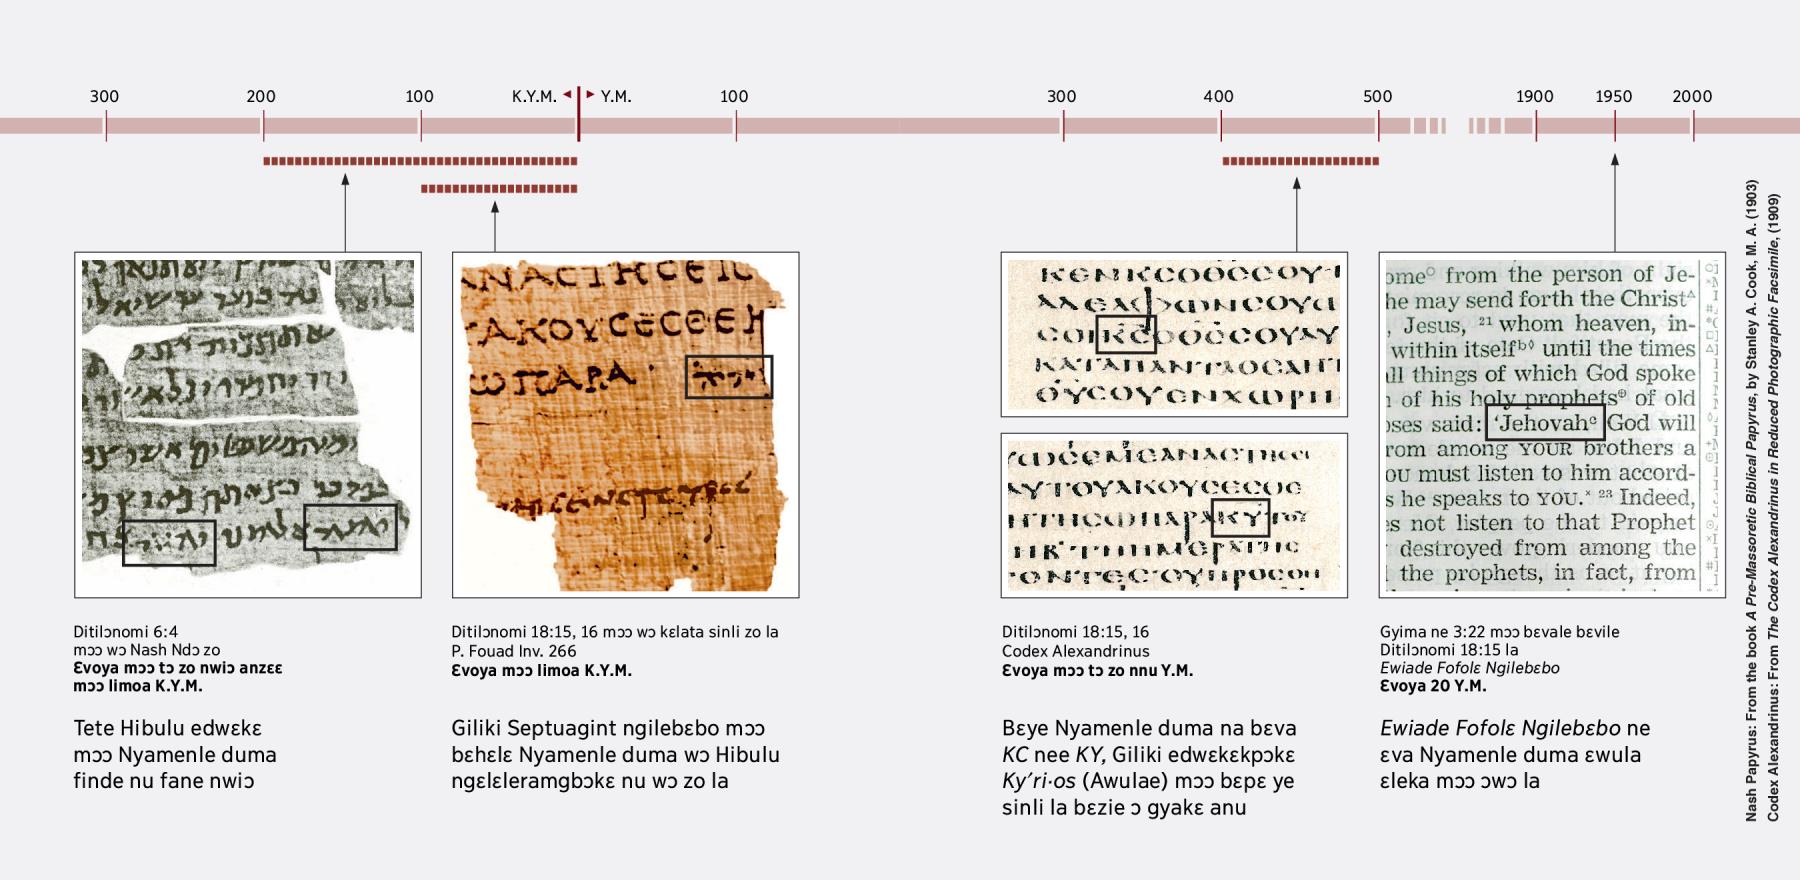 300 200 100 K.Y.M. Y.M. 100 300 400 500 1900 1950 2000
ΝΑϹΤΗϹΕΙϹ
ΑΚΟΥϹΕϹΘΕ
ΩΠΑΡΑ
ΚΕΝΚϹΟΘϹϹΟΥ
ϹΟΙΚϹΟΘϹϹΟΥΑΥ
ΚΑΤΑΠΑΝΤΑΟϹΑΗΤ
ΟΥϹΟΥΕΝΧΩΡΗ
ΥΤΟΥΑΚΟΥϹΕϹΘΕ
ΗΤΗϹΩΠΑΡΑΚΥΤΟΥ
ΟΝΤΕϹΟΥΠΡΟϹΟΗ
ome° from the person of Je-
he may send forth the Christ
, Jesus, 21 whom heaven, in-
within itself until the times
all things of which God spoke
of his holy prophets of old
oses said: ‘Jehovah God will
rom among YOUR brothers a
ou must listen to him accord-
s he speaks to YOU. 23 Indeed,
es not listen to that Prophet
destroyed from among the
the prophets, in fact, from
Ditilɔnomi 6:4
mɔɔ wɔ Nash Ndɔ zo
Ɛvoya mɔɔ tɔ zo nwiɔ anzɛɛ
mɔɔ limoa K.Y.M.
Tete Hibulu edwɛkɛ
mɔɔ Nyamenle duma
finde nu fane nwiɔ
Ditilɔnomi 18:15, 16 mɔɔ wɔ kɛlata sinli zo la
P. Fouad Inv. 266
Ɛvoya mɔɔ limoa K.Y.M.
Giliki Septuagint ngilebɛbo mɔɔ
bɛhɛlɛ Nyamenle duma wɔ Hibulu
ngɛlɛleramgbɔkɛ nu wɔ zo la
Ditilɔnomi 18:15, 16
Codex Alexandrinus
Ɛvoya mɔɔ tɔ zo nnu Y.M.
Bɛye Nyamenle duma na bɛva
KC nee KY, Giliki edwɛkɛkpɔkɛ
Kyʹri·os (Awulae) mɔɔ bɛpɛ ye
sinli la bɛzie ɔ gyakɛ anu
Gyima ne 3:22 mɔɔ bɛvale bɛvile
Ditilɔnomi 18:15 la
Ewiade Fofolɛ Ngilebɛbo
Ɛvoya 20 Y.M.
Ewiade Fofolɛ Ngilebɛbo ne
ɛva Nyamenle duma ɛwula
ɛleka mɔɔ ɔwɔ la
Nash Papyrus: From the book A Pre-Massoretic Biblical Papyrus, by Stanley A. Cook, M. A. (1903)
Codex Alexandrinus: From The Codex Alexandrinus in Reduced Photographic Facsimile, (1909)